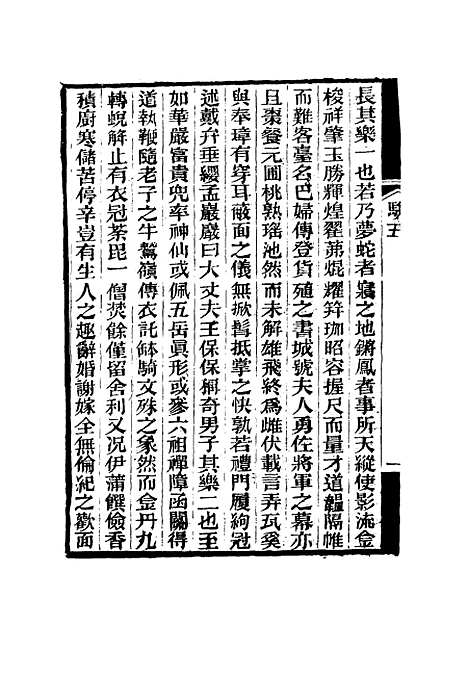 長其樂一也若乃夢蛇者寢之地鏘鳳者事所天縱使影流金
梭祥肇玉勝輝煌翟茀焜燿笄珈昭容握尺而量才道韞隔帷
而難客臺名巴婦傳登貨殖之書城號夫人勇佐將軍之幕亦
且棗餐元圃桃熟瑤池然而未解雄飛終為雌伏載言弄瓦奚
與奉璋有穿耳敲面之儀無掀髯抵掌之快孰若禮門履絇冠
述戴弁垂纓孟嚴嚴曰大丈夫王保保稱奇男子其樂二也至
如華嚴富貴兜率神仙或佩五岳眞形或參六祖禪障函關得
道執鞭隨老子之牛鷲嶺傳衣託鉢騎文殊之象然而金丹九
轉蛻解止有衣冠荼毘一僧焚餘僅留舍利又况伊蒲饌儉香
積廚寒儲苦停辛豈有生人之趣辭婚謝嫁全無倫紀之歡面
駢五
一